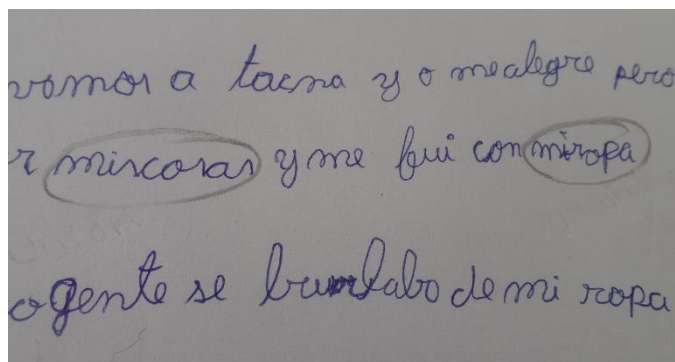 vamos a tacna y o mealegre pero
r miscosas y me fui con miropa
a gente se burlabo de mi ropa